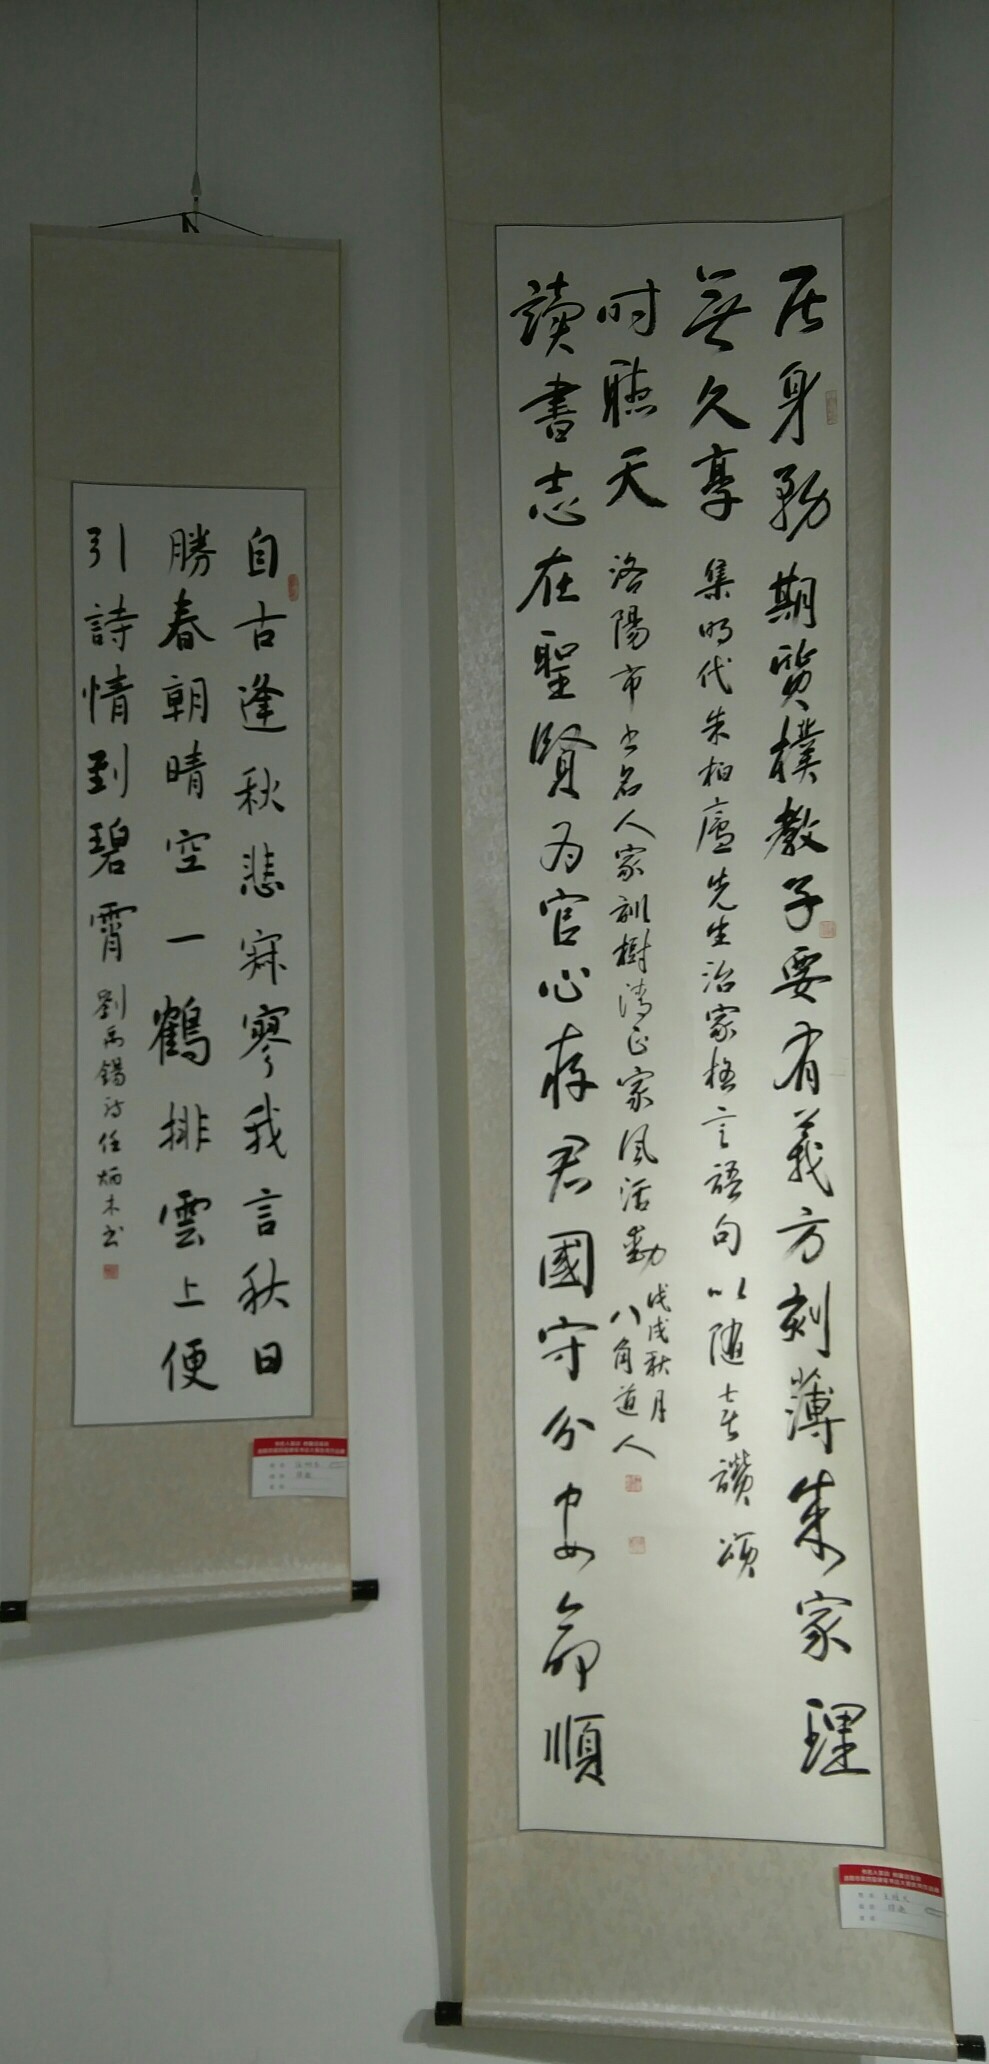 居身務期質樸教子要有義方刻薄朱家理
無久享
集明代朱柏廬先生治家格言語句以随喜讚頌
时聽天
洛陽市书名人家訓樹清正家风活動
戊戌秋月
八角道人
讀書志在聖賢为官心存君國守分安命順
自古逢秋悲寂寥我言秋日
勝春朝晴空一鶴排雲上便
引詩情到碧霄
劉禹錫诗任炳木书